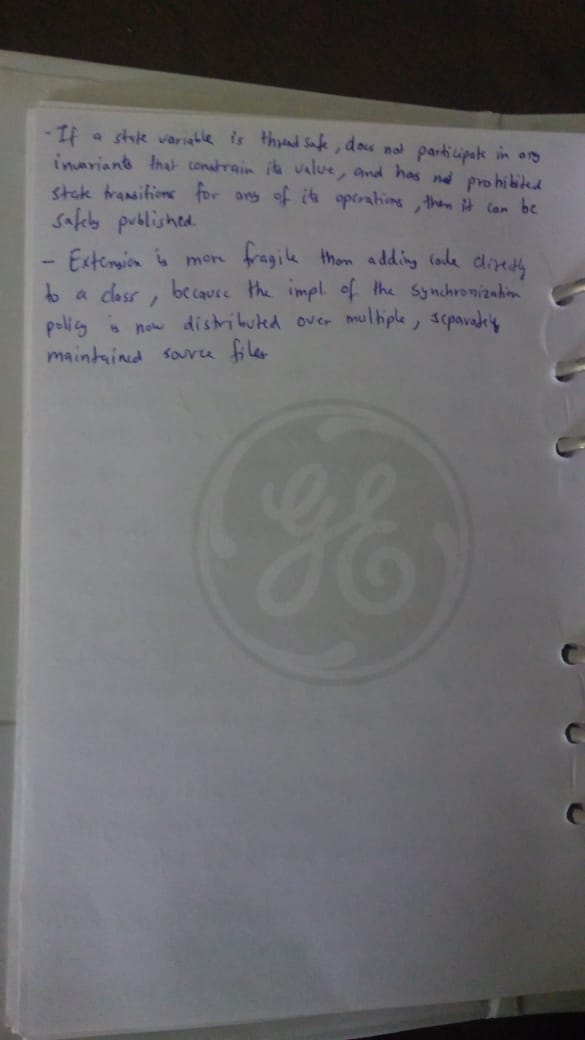 - If a state variable is thread safe, does not participate in any
invariants that constrain its value, and has no prohibited
state transitions for any of its operations, then it can be
safely published.
- Extension is more fragile than adding code directly
to a class, because the impl. of the synchronization
policy is now distributed over multiple, separately
maintained source files
GE